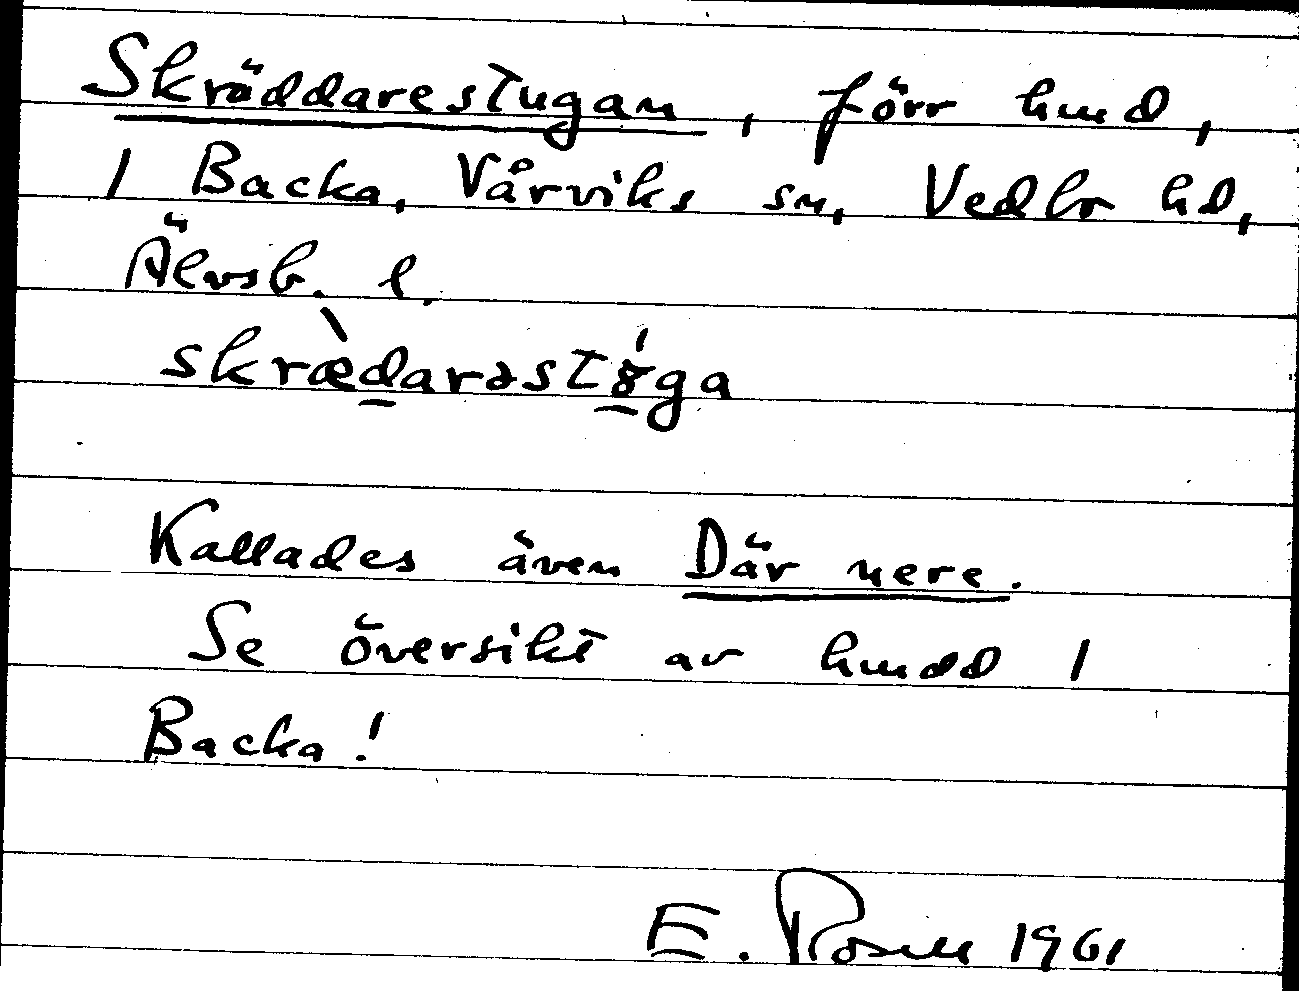 Skräddarestugan, förr hmd,
i Backa, Vårviks sn, Vedbo hd,
Älvsb. l.
skræ̀darəstó̤ga
Kallades även Där nere.
Se översikt av hmdd i
Backa!
E. Rosell 1961